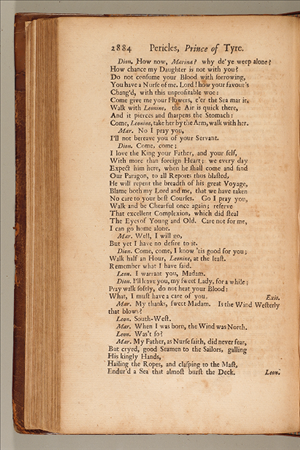 2884 Pericles, Prince of Tyre.
Dion. How now, Marina? why de'ye weep alone?
How chance my Daughter is not with you?
Do not consume your Blood with sorrowing,
You have a Nurse of me. Lord! how your favour's
Chang'd, with this unprofitable woe:
Come give me your Flowers, e'er the Sea mar it,
Walk with Leonine, the Air is quick there,
And it pierces and sharpens the Stomach:
Come, Leonine, take her by the Arm, walk with her.
Mar. No I pray you,
I'll not bereave you of your Servant.
Dion. Come, come;
I love the King your Father, and your self,
With more than foreign Heart; we every day
Expect him here, when he shall come and find
Our Paragon, to all Reports thus blasted,
He will repent the breadth of his great Voyage,
Blame both my Lord and me, that we have taken
No care to your best Courses. Go I pray you,
Walk and be Chearful once again; reserve
That excellent Complexion, which did steal
The Eyes of Young and Old. Care not for me,
I can go home alone.
Mar. Well, I will go,
But yet I have no desire to it.
Dion. Come, come, I know 'tis good for you;
Walk half an Hour, Leonine, at the least.
Remember what I have said.
Leon. I warrant you, Madam.
Dion. I'll leave you, my sweet Lady, for a while;
Pray walk softly, do not heat your Blood:
What, I must have a care of you. Exit.
Mar. My thanks, sweet Madam. Is the Wind Westerly
that blows?
Leon. South-West.
Mar. When I was born, the Wind was North.
Leon. Was't so?
Mar. My Father, as Nurse saith, did never fear,
But cryed, good Seamen to the Sailors, galling
His kingly Hands,
Hailing the Ropes, and clasping to the Mast,
Endur'd a Sea that almost burst the Deck. Leon.